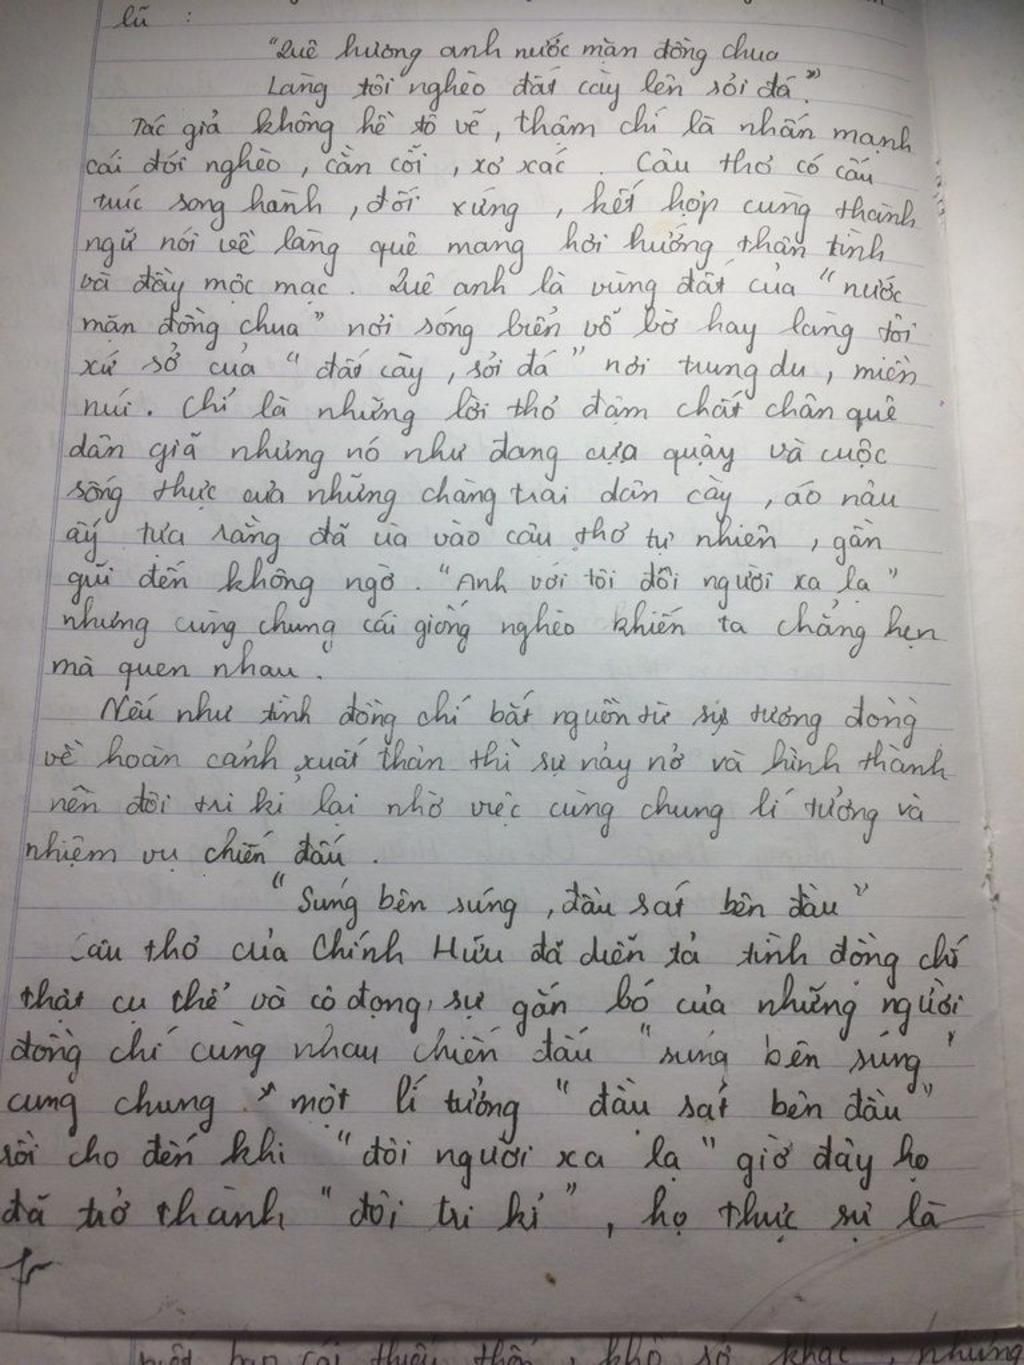 lũ :
"Quê hương anh nước mặn đồng chua
Làng tôi nghèo đất cày lên sỏi đá".
Tác giả không hề tô vẽ, thậm chí là nhấn mạnh
cái đói nghèo, cằn cỗi, xơ xác. Câu thơ có cấu
trúc song hành, đối xứng, kết hợp cùng thành
ngữ nói về làng quê mang hơi hướng thân tình
và đầy mộc mạc. Quê anh là vùng đất của "nước
mặn đồng chua" nơi sóng biển vỗ bờ hay làng tôi
xứ sở của "đất cày, sỏi đá" nơi trung du, miền
núi. Chỉ là những lời thơ đậm chất chân quê
dân giã nhưng nó như đang cựa quậy và cuộc
sống thực của những chàng trai dân cày, áo nâu
ấy tựa rằng đã ùa vào câu thơ tự nhiên, gần
gũi đến không ngờ. "Anh với tôi đôi người xa lạ"
nhưng cùng chung cái giống nghèo khiến ta chẳng hẹn
mà quen nhau.
Nếu như tình đồng chí bắt nguồn từ sự tương đồng
về hoàn cảnh xuất thân thì sự nảy nở và hình thành
nên đôi tri kỉ lại nhờ việc cùng chung lí tưởng và
nhiệm vụ chiến đấu.
"Súng bên súng, đầu sát bên đầu"
Câu thơ của Chính Hữu đã diễn tả tình đồng chí
thật cụ thể và cô đọng, sự gắn bó của những người
đồng chí cùng nhau chiến đấu "súng bên súng"
cùng chung một lí tưởng "đầu sát bên đầu"
rồi cho đến khi "đôi người xa lạ" giờ đây họ
đã trở thành "đôi tri kỉ", họ thực sự là
thiếu thốn, khổ sở khác, nhưng